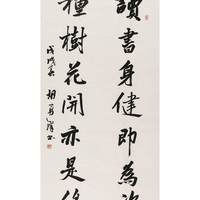 讀書身健即為
種樹花開亦是
戊戌